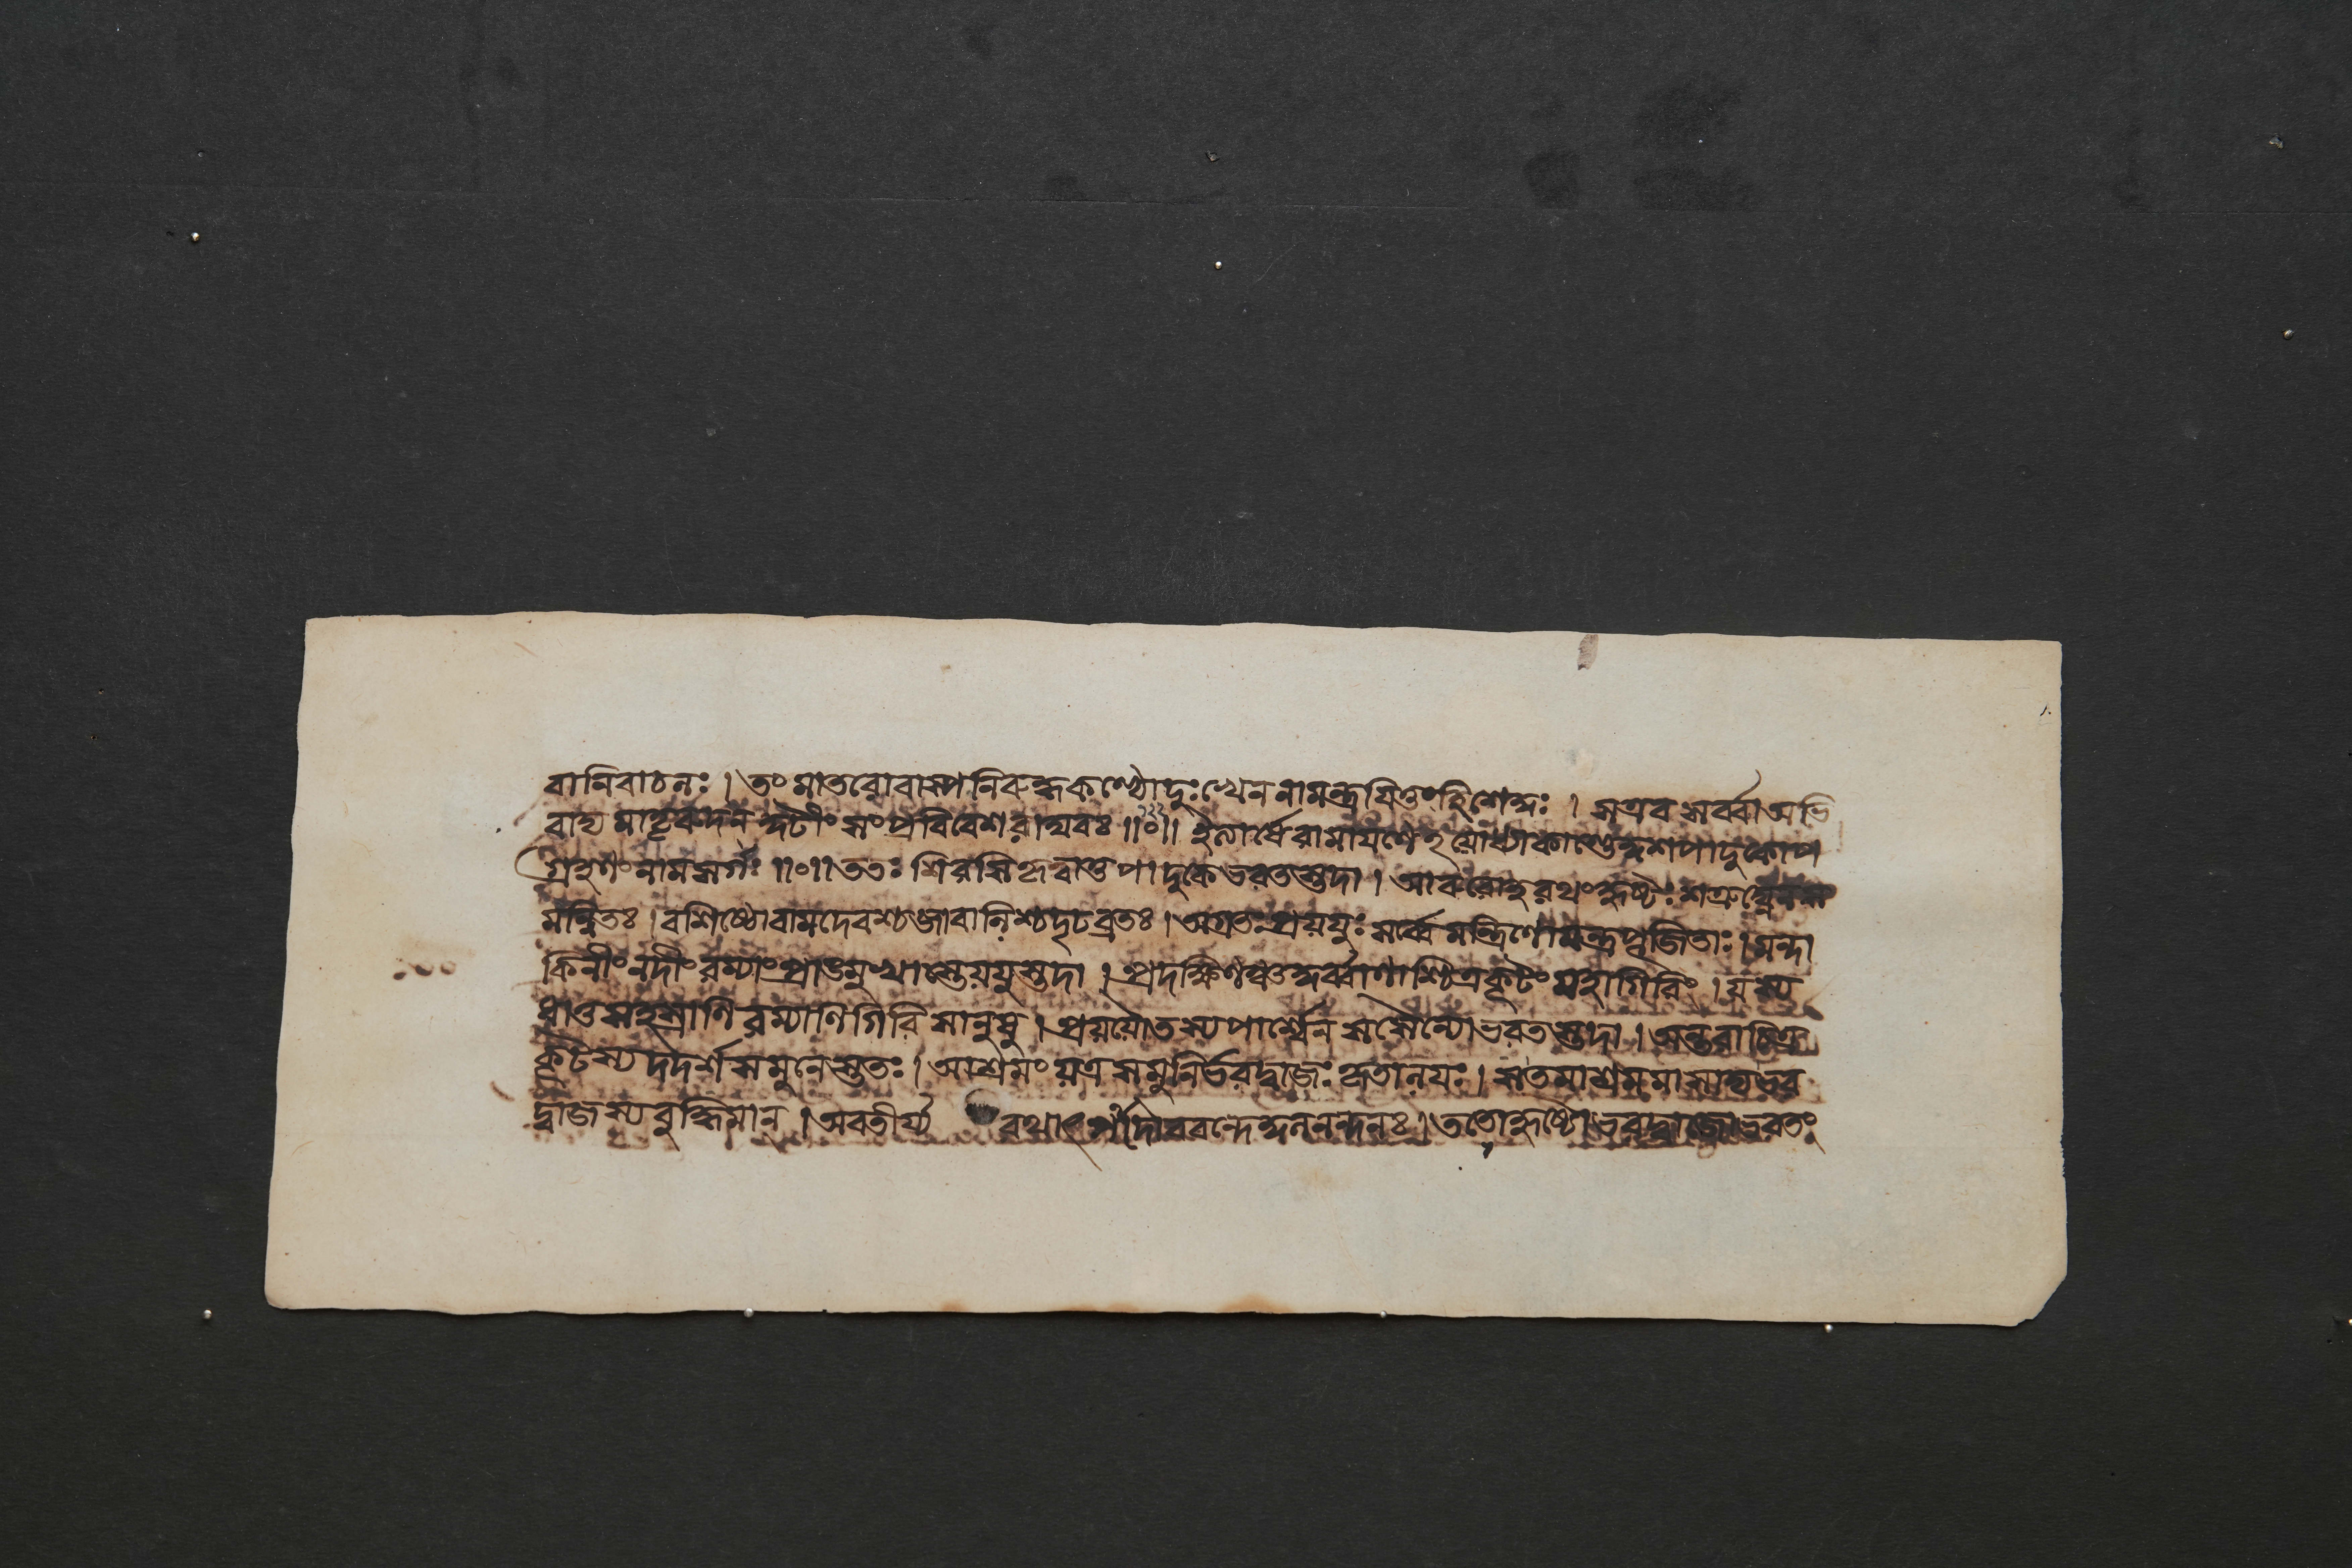 বানিবাচলঃ । তং মাতরোবাষ্পনিরুদ্ধকণ্ঠ্যোদুঃখেন নামন্ত্রয়িতুংহিশেকুঃ । সএব সর্ব্বাঅভি
বাদ্য মাতৄরুদন্ কুটীং সংপ্রবিবেশ রামঃ ॥০॥ ইত্যার্ষেরামায়ণেঽযোধ্যাকাণ্ডেকুশপাদুকোপ
গ্রহণং নামসর্গঃ ॥০॥ ততঃ শিরসিকৃত্বাতু পাদুকে ভরতস্তদা । আরুরোহ রথংহৃষ্টঃ শত্রুঘ্নেনস
মন্বিতঃ । বশিষ্ঠোবামদেবশ্চজাবালিশ্চদৃঢব্রতঃ । অগ্রতঃপ্রযযুঃ সর্ব্বেমন্ত্রিণোমন্ত্রপূজিতাঃ । মন্দা
কিনীং নদীং রম্যাং প্রাঙমুখাস্তেযযুস্তদা । প্রদক্ষিণঞ্চকুর্ব্বাণাশ্চিত্রকূটং মহাগিরিং । যস্য
ধাতুসহস্রাণি রম্যাণিগিরিসানুষু । প্রযযৌতস্যপার্শ্বেন সসৈন্যোভরতস্তদা । অন্তরাচিত্র
কূটস্য দদর্শসমুনেস্ততঃ । আশ্রমং যত্র সমুনির্ভরদ্বাজঃ কৃতালযঃ । সতমাশ্রমমাসাদ্যভর
দ্বাজস্যবুদ্ধিমান । অবতীর্য্য রথাৎপাদৌববন্দেকুলনন্দনঃ । ততোহৃষ্টোভরদ্বাজোভরতং